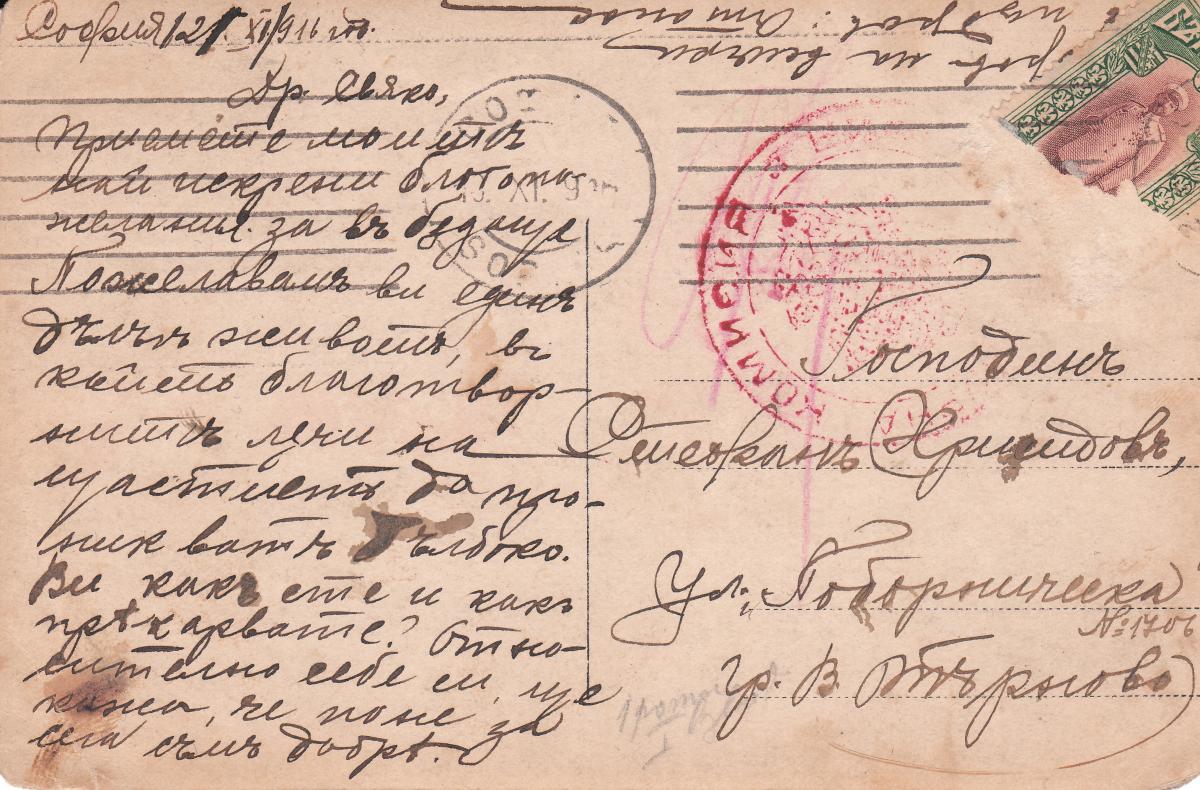 София/21. XI/916 год.
Др. Свяко,
Приемете моитѣ
най искрени благопо-
желания за въ бѫдуще
Пожелавамъ ви единъ
дълъгъ животъ, въ
който благотвор-
нитѣ лучи на
щастието да про-
никватъ дълбоко.
Ви какъ сте и какъ
прѣкарвате? Относително
сително себе си, ще
кажа, че поне за
сега съмъ добрѣ.
на всички
КОМИСИЯ
Господинъ
Стефанъ Христовъ,
Ул. „Поборническа
№ 1706
гр. В. Търново